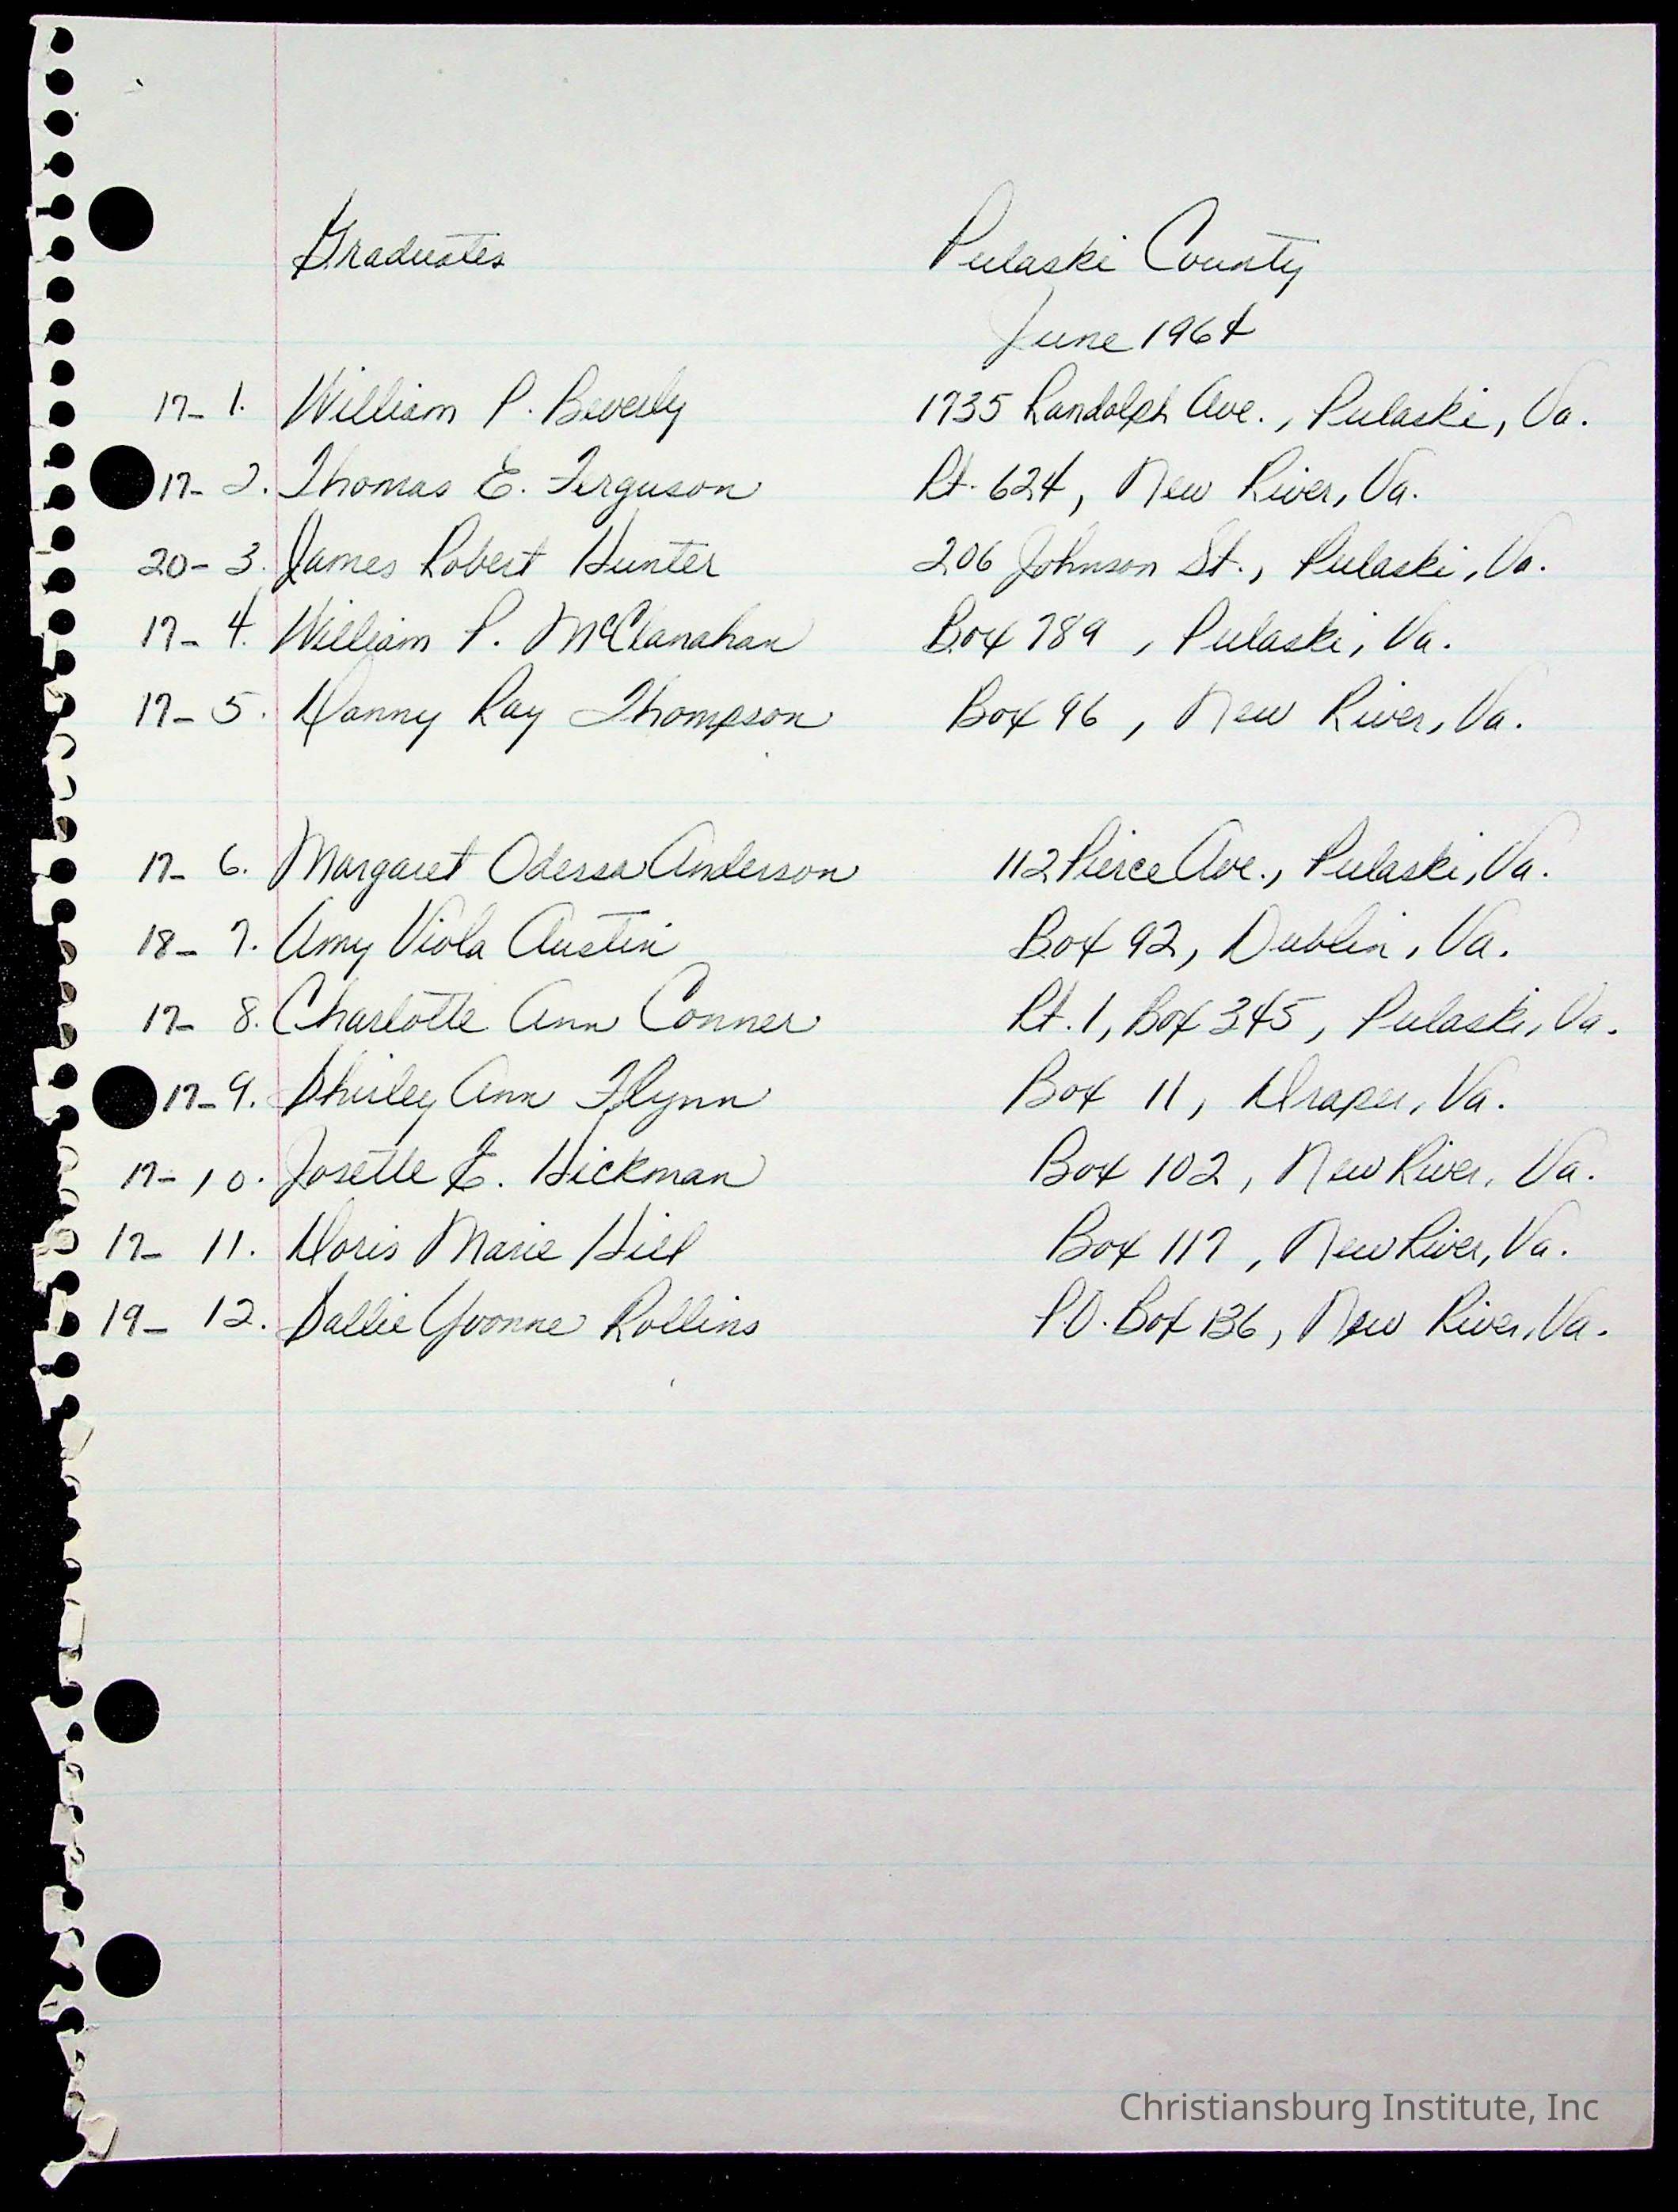 Graduates Pulaski County
June 1964
17- 1. William P. Beverly 1735 Randolph Ave., Pulaski, Va.
17- 2. Thomas E. Ferguson Rt. 624, New River, Va.
20- 3. James Robert Hunter 206 Johnson St., Pulaski, Va.
17- 4. William P. McClanahan Box 789, Pulaski, Va.
17- 5. Danny Ray Thompson Box 96, New River, Va.
17- 6. Margaret Odessa Anderson 112 Pierce Ave., Pulaski, Va.
18- 7. Amy Viola Austin Box 92, Dublin, Va.
17- 8. Charlotte Ann Conner Rt. 1, Box 345, Pulaski, Va.
17- 9. Shirley Ann Flynn Box 11, Draper, Va.
17- 10. Josette E. Hickman Box 102, New River, Va.
17- 11. Doris Marie Hill Box 117, New River, Va.
19- 12. Sallie Yvonne Rollins P.O. Box 136, New River, Va.
Christiansburg Institute, Inc